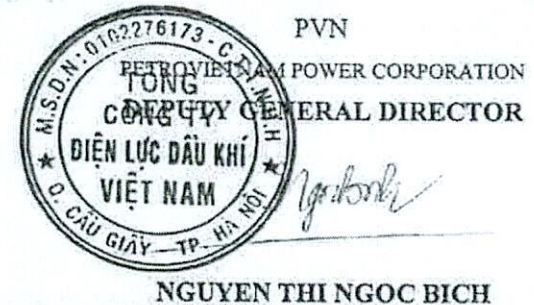 PVN
PETROVIETNAM POWER CORPORATION
DEPUTY GENERAL DIRECTOR
M.S.D.N: 0102276173 - C.T.T.N.H.H
TỔNG
CÔNG TY
ĐIỆN LỰC DẦU KHÍ
VIỆT NAM
Q. CẦU GIẤY - TP. HÀ NỘI
NGUYEN THI NGOC BICH